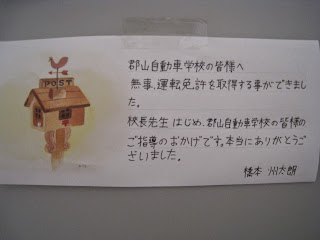 POST
郡山自動車学校の皆様へ
無事、運転免許を取得する事ができまし
た。
校長先生はじめ、郡山自動車学校の皆様の
ご指導のおかげです。本当にありがとうご
ざいました。
橋本 州太朗